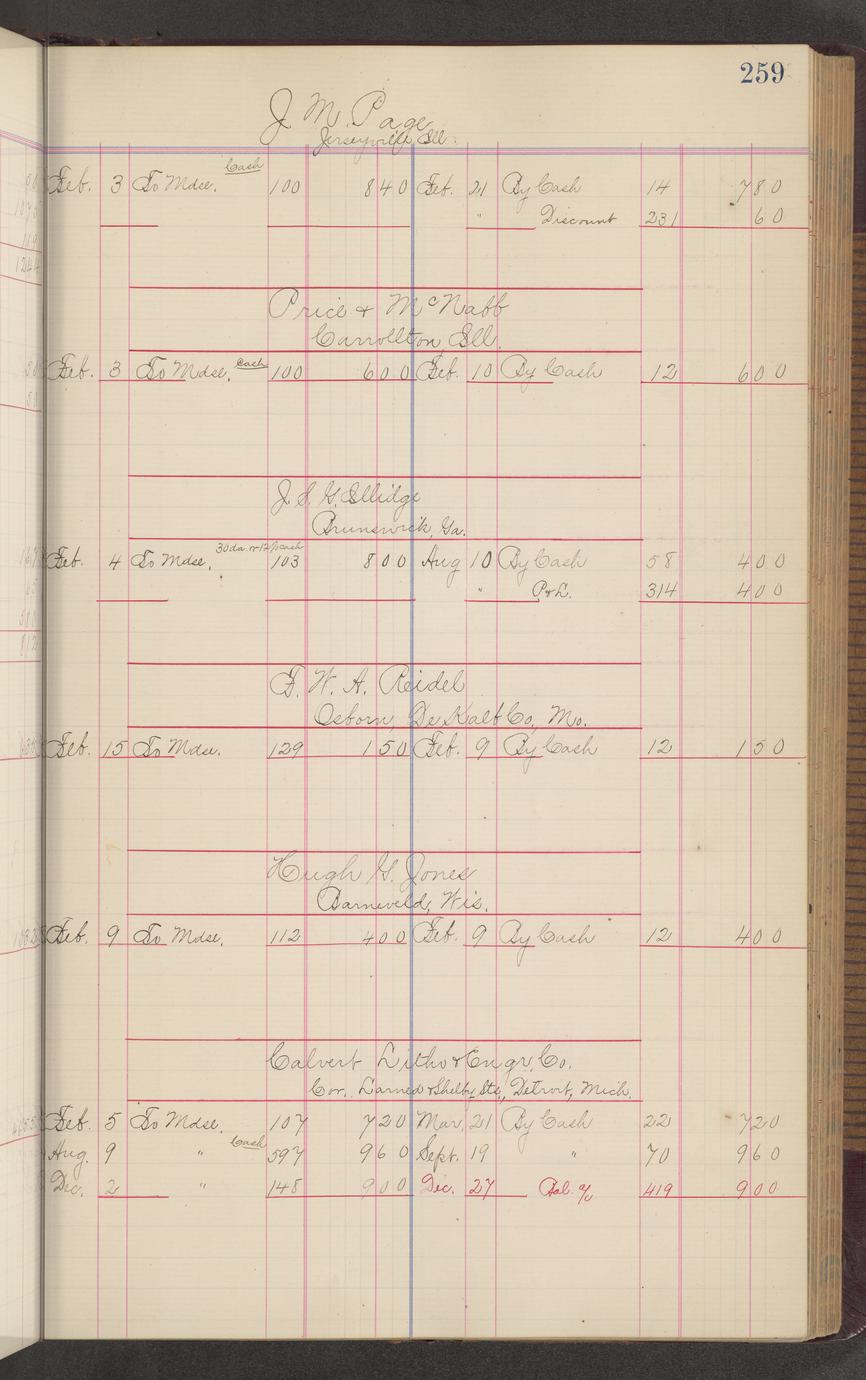 259
J. M. Page
Jerseyville, Ill.
Cash
Feb. 3 To Mdse. 100 840 Feb. 21 By Cash 14 780
" Discount 231 60
Price & McNabb
Carrollton, Ill.
Feb. 3 To Mdse. Cash 100 600 Feb. 10 By Cash 12 600
J. S. G. Ellidge
Brunswick, Ga.
30 da. or cash
Feb. 4 To Mdse. 103 800 Aug 10 By Cash 58 400
" P&L. 314 400
F. W. A. Reidel
Osborn, DeKalb Co, Mo.
Feb. 15 To Mdse. 129 150 Feb. 9 By Cash 12 150
Hugh G. Jones
Barneveld, Wis.
Feb. 9 To Mdse. 112 400 Feb. 9 By Cash 12 400
Calvert Litho & Engr. Co.
Cor. Larned & Shelby Sts., Detroit, Mich.
Feb. 5 To Mdse. 107 720 Mar. 21 By Cash 22 720
Aug. 9 " Cash 597 960 Sept. 19 " 70 960
Dec. 2 " 148 900 Dec. 27 Bal. % 419 900